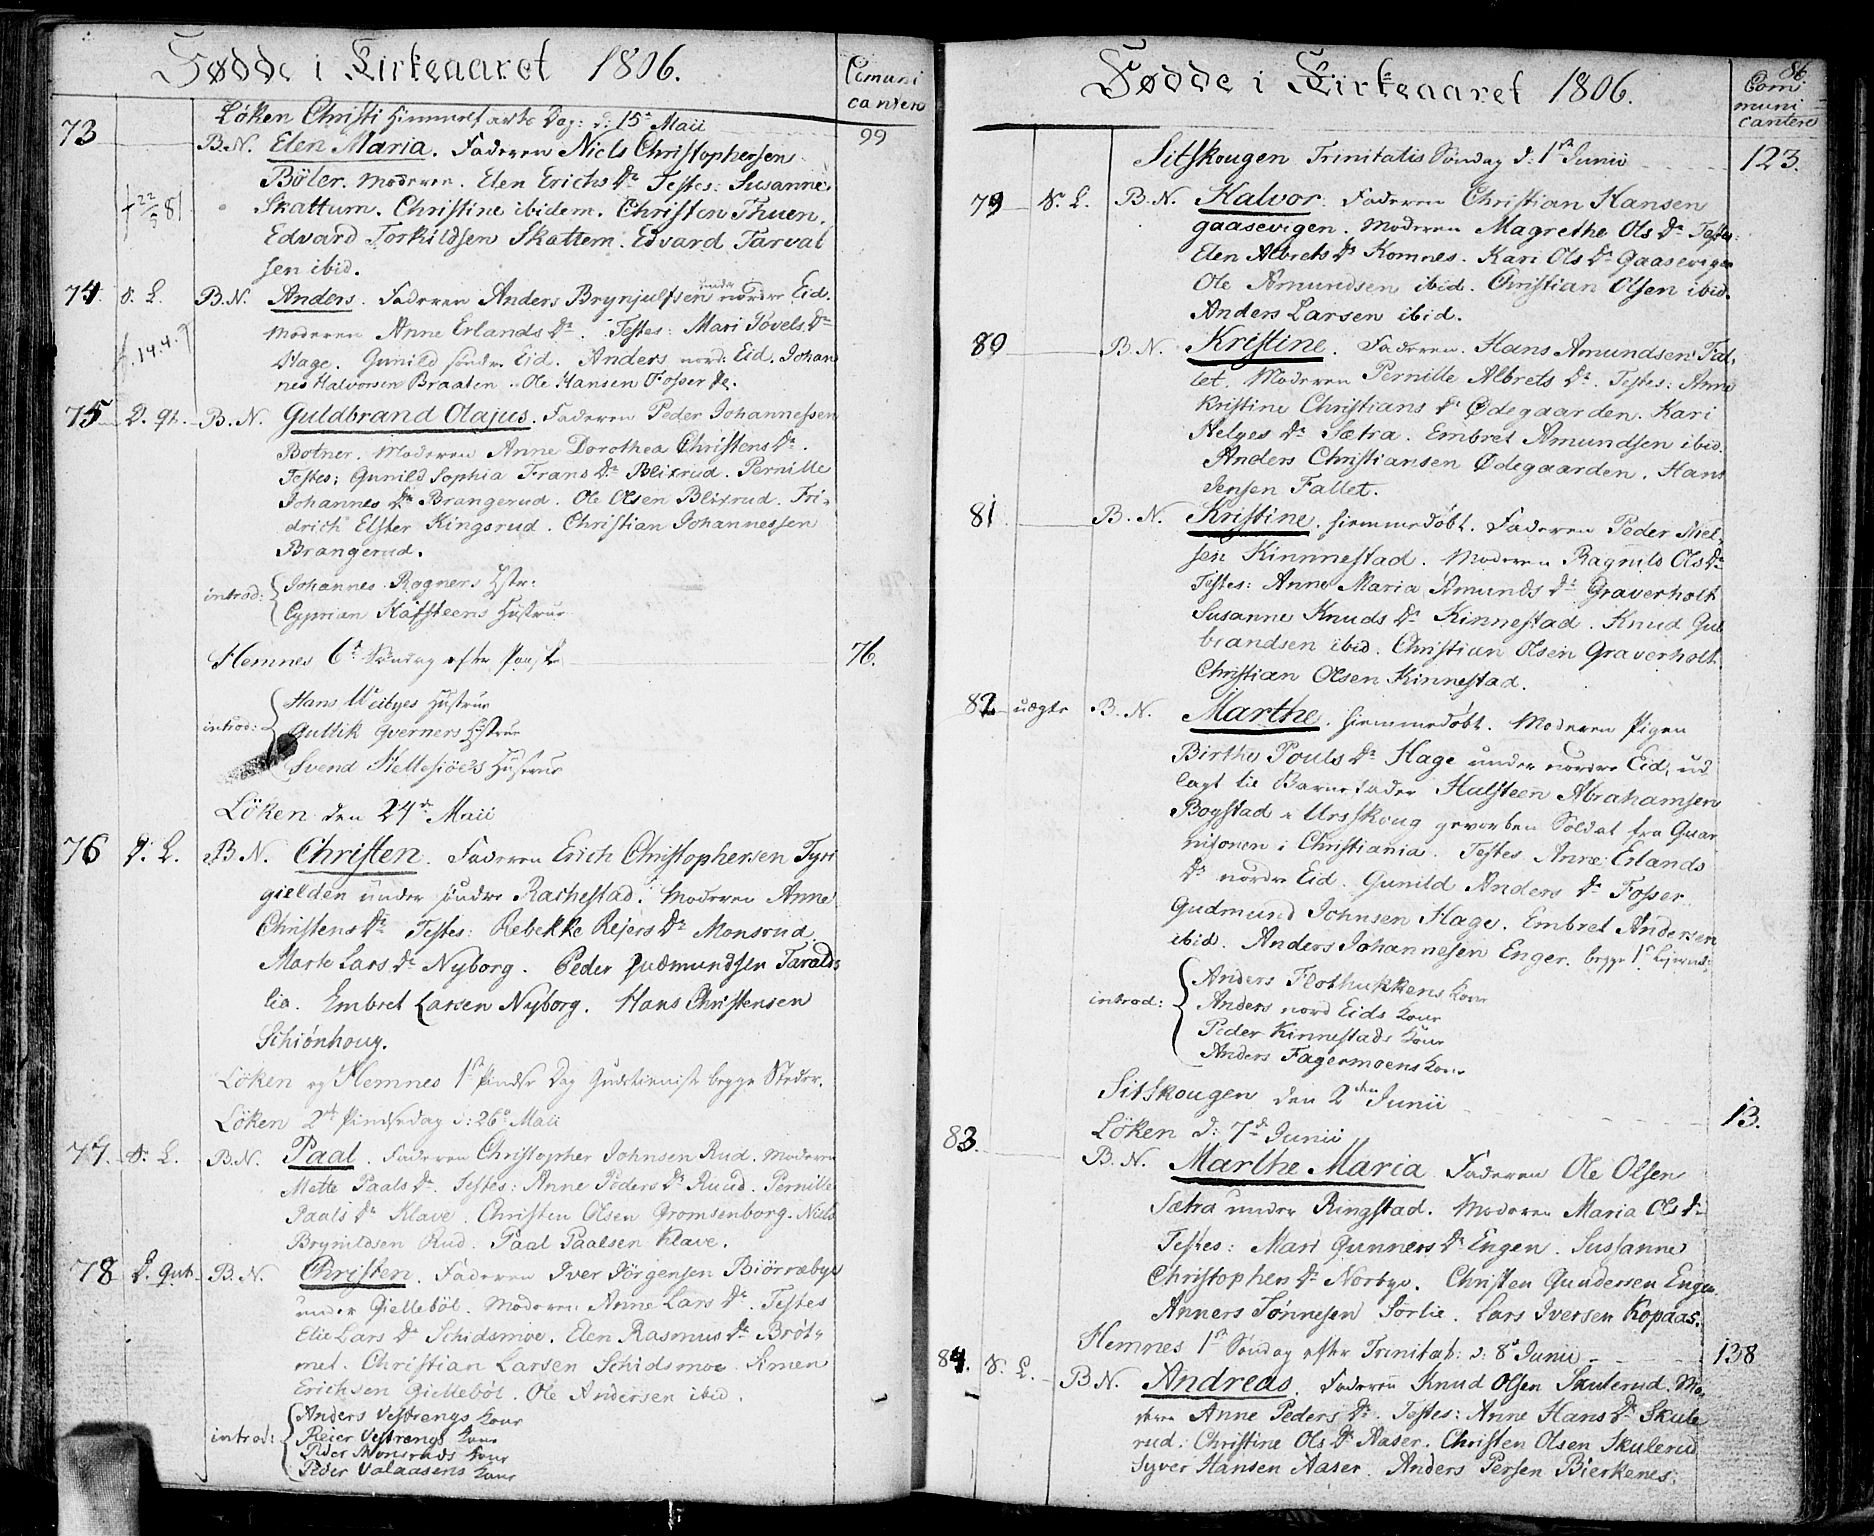 Födde i Kirkeaaret 1806.
Comuni
canter
73
Löken Christi Himmelfarts Dag: d: 15de Maii
99
B.N. Elen Maria. Faderen Niels Christophersen
Böler. Moderen. Elen Erichs Dr Testes: Susanne
† 22/5 81
Skattum. Christine ibidem. Christen Thuen,
Edvard Torkildsen Skattem. Edvard Tarval
sen ibid.
74. S. L. B.N. Anders. Faderen Anders Brynjulfsen under nordre Eid.
Moderen Anne Erlands Dr. Testes: Mari Povels Dr
f. 14.4.
Hage. Gunild søndr Eid. Anders nord: Eid. Johan
nes Halvorsen Braaten. Ole Hansen Fosser
75 D. gt. B.N. Guldbrand Olajus. Faderen Peder Johannessen
Botner. Moderen Anne Dorothea Christens Dr.
Testes: Gunild Sophia Frans Dr Blixrud. Pernille
Johannes Dr Brangerud. Ole Olsen Blixrud. Fri-
drich Elster Kingsrud. Christian Johannessen
Brangerud.
introd: Johannes Ragners Hstr:
Cyprian Kafsteens Hustrue
Hemnes 6te Søndag efter Paaske
76.
introd: Hans Weibyes Hustrue
Guttik Gverners Hustrue
Svend Hellesiöes Hustrue
Löken den 24de Maii
76 D. L. B.N. Christen. Faderen Erich Christophersen Tyri
gielden under søndre Rachestad. Moderen Anne
Christens Dr Testes: Rebekke Rejers Dr Monsrud
Marte Lars Dr Nyborg. Peder Gudmundsen Tarald
lia. Embret Larsen Nyborg. Hans Christensen
Schiönhoug.
Löken og Hemnes 1ste Pindse Dag Gudstieniste begge Steder.
Löken 2den Pindsedag d: 26de Maii
77. S. L. B.N. Paal. Faderen Christopher Johnsen Rud. Moderen
Mette Paals Dr. Testes: Anne Peders Dr Ruud. Pernille
Paals Dr Klave. Christen Olsen Gromsenborg. Niels
Brynildsen Rud. Paal Paalsen Klave.
78 D. gut. B.N. Christen. Faderen Iver Jörgensen Biörnebye
under Giellebøl. Moderen Anne Lars Dr. Testes
Elie Lars Dr Schidsmoe. Elen Rasmus Dr Bröt-
met. Christian Larsen Schidsmoe. Simen
Erichsen Giellebøl. Ole Andersen ibid.
introd: Anders Vestrengs Kone
Reier Vestrengs Kone
Peder Monsruds Kone
Peder Valaasens Kone
Födde i Kirkeaaret 1806.
86.
Com
muni
cantere
Sitskougen Trinitatis Søndag d: 1ste Junii
123.
79 S. L. B.N. Halvor. Faderen Christian Hansen
gaasevigen. Moderen Magrethe Ols Dr Testes:
Elen Albrets Dr Komnes. Kari Ols Dr Gaasevigen
Ole Amundsen ibid. Christian Olsen ibid.
Anders Larsen ibid.
80 B.N. Kristine. Faderen. Hans Amundsen Fal-
let. Moderen Pernille Albrets Dr. Testes: Anne
Kristine Christians Dr Ødegaarden. Kari
Helges Dr Sætra. Embret Amundsen ibid.
Anders Christiansen Ødegaarden. Hans
Jensen Fallet.
81 B.N. Kristine. hiemmedøbt. Faderen Peder Niel-
sen Kinnnestad. Moderen Ragnild Ols Dr
Testes: Anne Maria Amunds Dr Graverholt
Susanne Knuds Dr Kinnestad. Knud Gul
brandsen ibid. Christian Olsen Graverholt.
Christian Olsen Kinnestad.
82 uægte B.N. Marthe. hiemmedøbt. Moderen Pigen
Birthe Pouls Dr Hage under nordre Eid, ud
lagt til Barnefader Hulsteen Abrahamsen
Bogstad i Urskoug gevorben Soldat fra Guar
nisonen i Christiania. Testes Anne Erlands
Dr nordre Eid. Gunild Anders Dr Fosser.
Gudmund Johnsen Hage. Embret Andersen
ibid. Anders Johannesen Enger. begge 1ste
introd: Anders Flothukkens Kone
Anders nord Eids Kone
Peder Kinnestads Kone
Anders Fagermoens Kone
Sitskougen den 2den Junii
13.
83. Löken d: 7de Junii
B.N. Marthe Maria. Faderen Ole Olsen
Sætra under Ringstad. Moderen Maria Ols Dr
Testes: Mari Gunners Dr Engen. Sussanne
Christophers Dr Norbye. Christen Gundersen Engen
Anners Tönnesen Sorlie. Lars Iversen Kopaas.
Hemnes 1ste Søndag efter Trinitat: d: 8de Junii
138
84. S. L. B.N. Andreas. Faderen Knud Olsen Skulerud. Mo-
deren Anne Peders Dr. Testes: Anne Hans Dr Skule
rud. Christine Ols Dr Aaser. Christen Olsen Skulerud
Syver Hansen Aaser. Anders Persen Bierkenes.